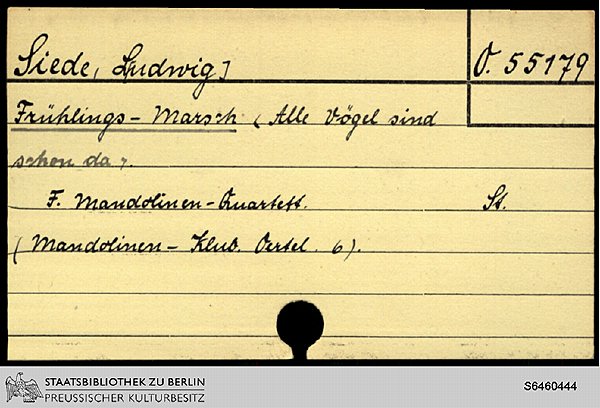 Siede, Ludwig]
O. 55179
Frühlings-Marsch (Alle Vögel sind
schon da).
F. Mandolinen-Quartett. St.
(Mandolinen-Klub. Oertel. 6).
STAATSBIBLIOTHEK ZU BERLIN
PREUSSISCHER KULTURBESITZ
S6460444